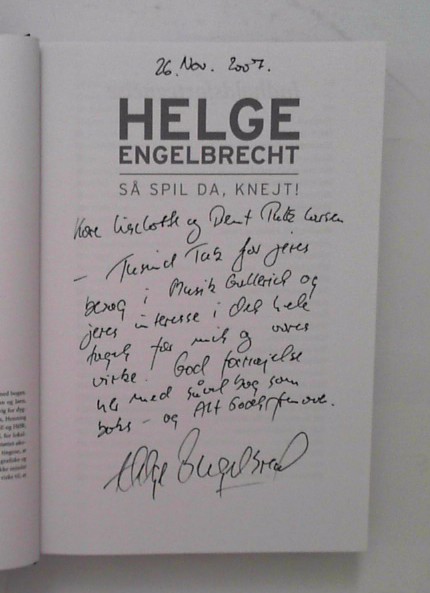 26. Nov. 2007.
HELGE
ENGELBRECHT
SÅ SPIL DA, KNEJT!
Kære Liselotte og Bent Larsen
- Tusind Tak for jeres
besøg i Musik Galleriet og
jeres interesse i det hele
taget for mit og vores
virke. God fornøjelse
med såvel bog som
boks - og Alt Godt fremover.
Helge Engelbrecht